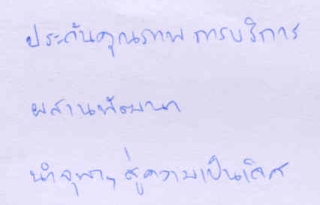 ประกันคุณภาพ การบริการ
ผสานพัฒนา
นำจุฬาฯ สู่ความเป็นเลิศ